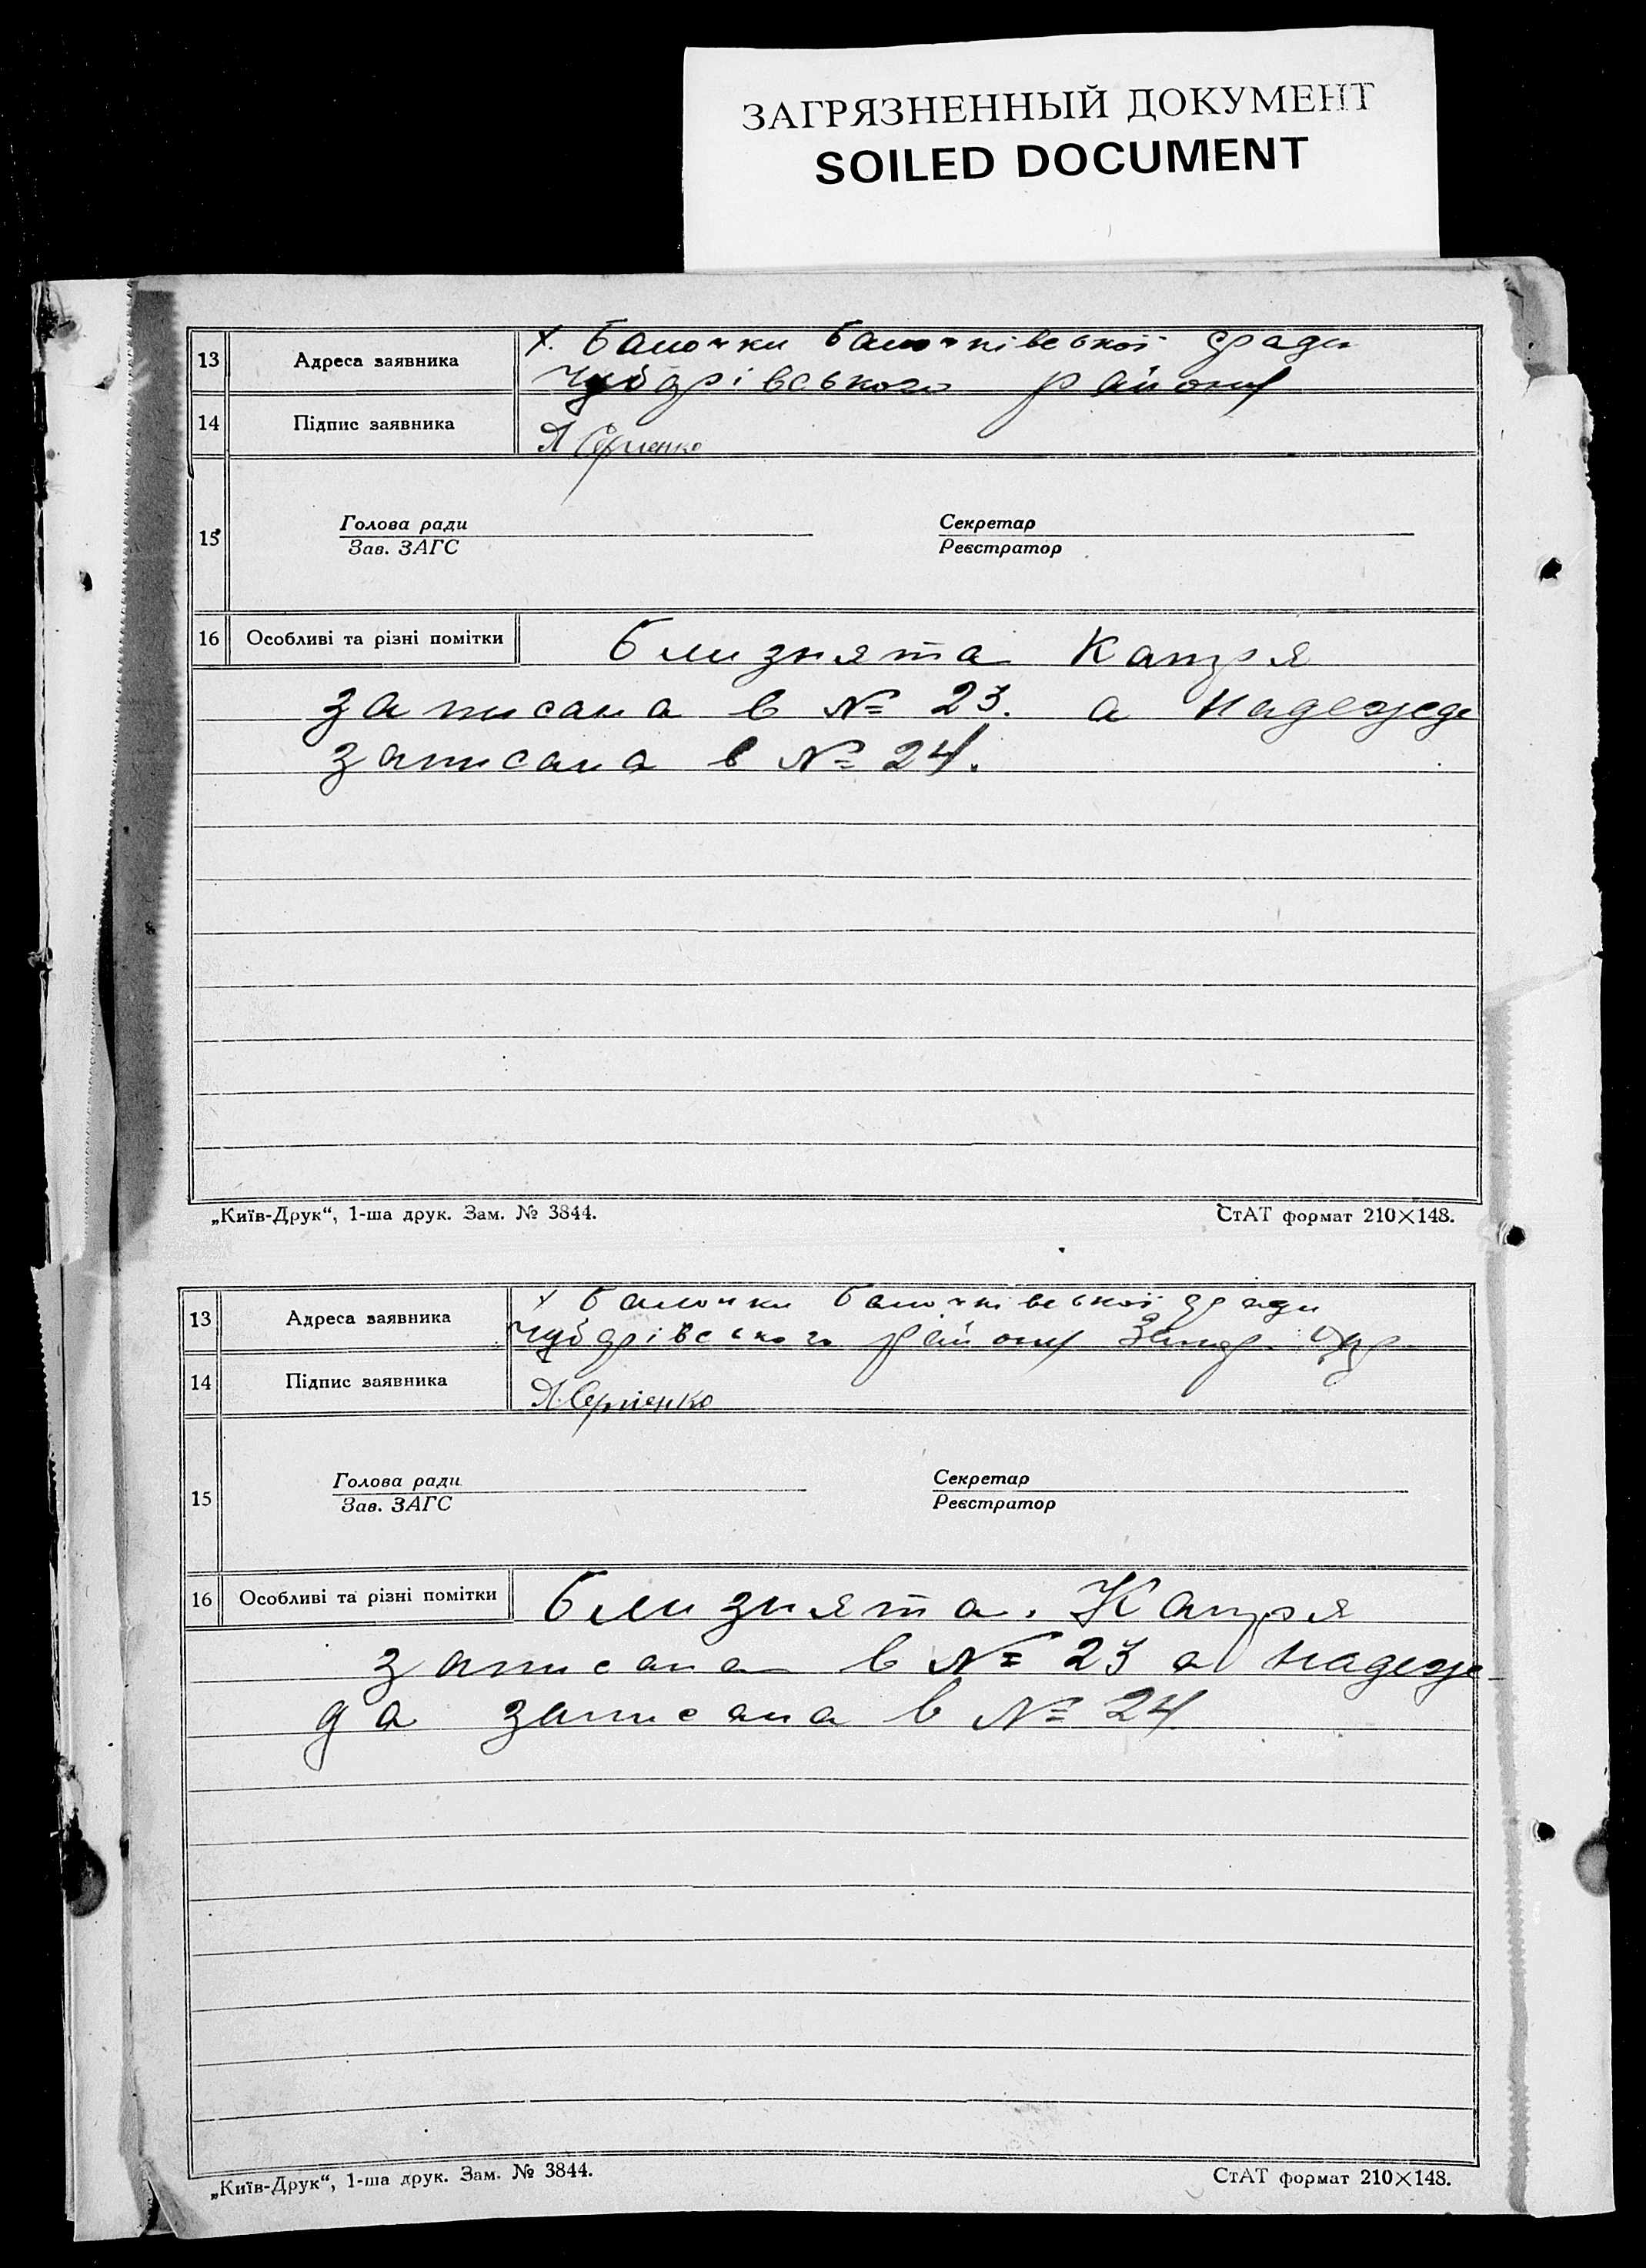 ЗАГРЯЗНЕННЫЙ ДОКУМЕНТ
SOILED DOCUMENT
13 Адреса заявника х. Балочки Балочківської ради
Чубарівського району
14 Підпис заявника Я Сергиенко
15 Голова ради
Зав. ЗАГС
Секретар
Реєстратор
16 Особливі та різні помітки близнята Катря
записана в № 23. а Надежда
записана в № 24.
„Київ-Друк“, 1-ша друк. Зам. № 3844. СтАТ формат 210×148.
13 Адреса заявника х Балочки Балочківської ради
Чубарівського району Запор. Окр
14 Підпис заявника Я. Сергієнко
15 Голова ради
Зав. ЗАГС
Секретар
Реєстратор
16 Особливі та різні помітки близнята. Катря
записана в № 23 а надеж-
да записана в № 24
„Київ-Друк“, 1-ша друк. Зам. № 3844. СтАТ формат 210×148.